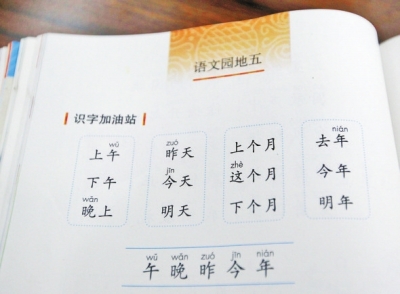 语文园地五
识字加油站
wǔ zuó nián
上午 昨天 上个月 去年
jīn zhè
下午 今天 这个月 今年
wǎn
晚上 明天 下个月 明年
wǔ wǎn zuó jīn nián
午 晚 昨 今 年